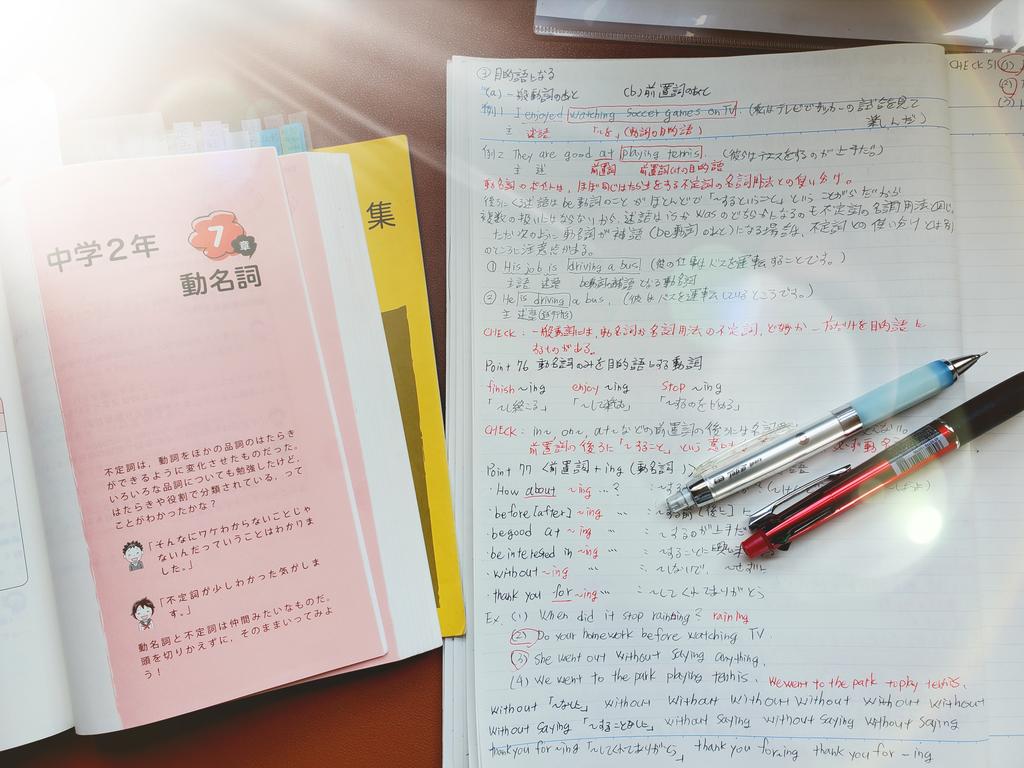 中学2年
7章
動名詞
不定詞は，動詞をほかの品詞のはたらき
ができるように変化させたものだった。
いろいろな品詞についても勉強したけど，
はたらきや役割で分類されている，って
ことがわかったかな？
「そんなにワケわからないことじゃ
ないんだっていうことはわかりま
した。」
「不定詞が少しわかった気がしま
す。」
動名詞と不定詞は仲間みたいなものだ。
頭を切りかえずに，そのままいってみよ
う！
集
③目的語となる
(a) 一般動詞のあと (b) 前置詞のあと
例1 I enjoyed watching soccer games on TV. (私はテレビでサッカーの試合を見て
楽しんだ)
主 述語 「〜を」(動詞の目的語)
例2 They are good at playing tennis. (彼らはテニスをするのが上手だ。)
主 述 前置詞 前置詞の目的語
動名詞のポイントは、ほぼ同じはたらきをする不定詞の名詞用法との使い分け。
後ろにくる述語はbe動詞のことがほとんどで「〜するということ」ということがらだから
複数の扱いにはならないから、述語はisかwasのどちらかになるのも不定詞の名詞用法と同じ。
ただ次のように動名詞が補語(be動詞のあと)になる場合は、不定詞との使い分けとは別
のところに注意点がある。
① His job is driving a bus. (彼の仕事はバスを運転することです。)
主語 述語 be動詞の補語となる動名詞
② He is driving a bus. (彼はバスを運転しているところです。)
主 述語(進行形)
CHECK: 一般動詞には、動名詞か名詞用法の不定詞、どちらか一方だけを目的語に
するものがある。
Point 76 動名詞のみを目的語とする動詞
finish 〜ing enjoy 〜ing stop 〜ing
「〜し終える」 「〜して楽しむ」 「〜するのをやめる」
CHECK: in〜, on〜, at〜などの前置詞の後ろには名詞
前置詞の後ろに「〜すること」という 必ず動名
Point 77 〈前置詞+ing (動名詞)〉 語
・How about 〜ing …?
・before[after] 〜ing … : 〜する前[後]に
・be good at 〜ing … : 〜するのが上手だ
・be interested in 〜ing … : 〜することに
・without 〜ing … : 〜しないで、〜せずに
・thank you for 〜ing … : 〜してくれてありがとう
Ex. (1) When did it stop rainning? raining
(2) Do your homework before watching TV.
(3) She went out without saying anything.
(4) We went to the park playing tennis. We went to the park to play tennis.
without 「〜なしに」 without without without without without without
without saying 「〜することなしに」 without saying without saying without saying
thank you for 〜ing 「〜してくれてありがとう」 thank you for 〜ing thank you for 〜ing
CHECK 51 (1)
(2)
(3)